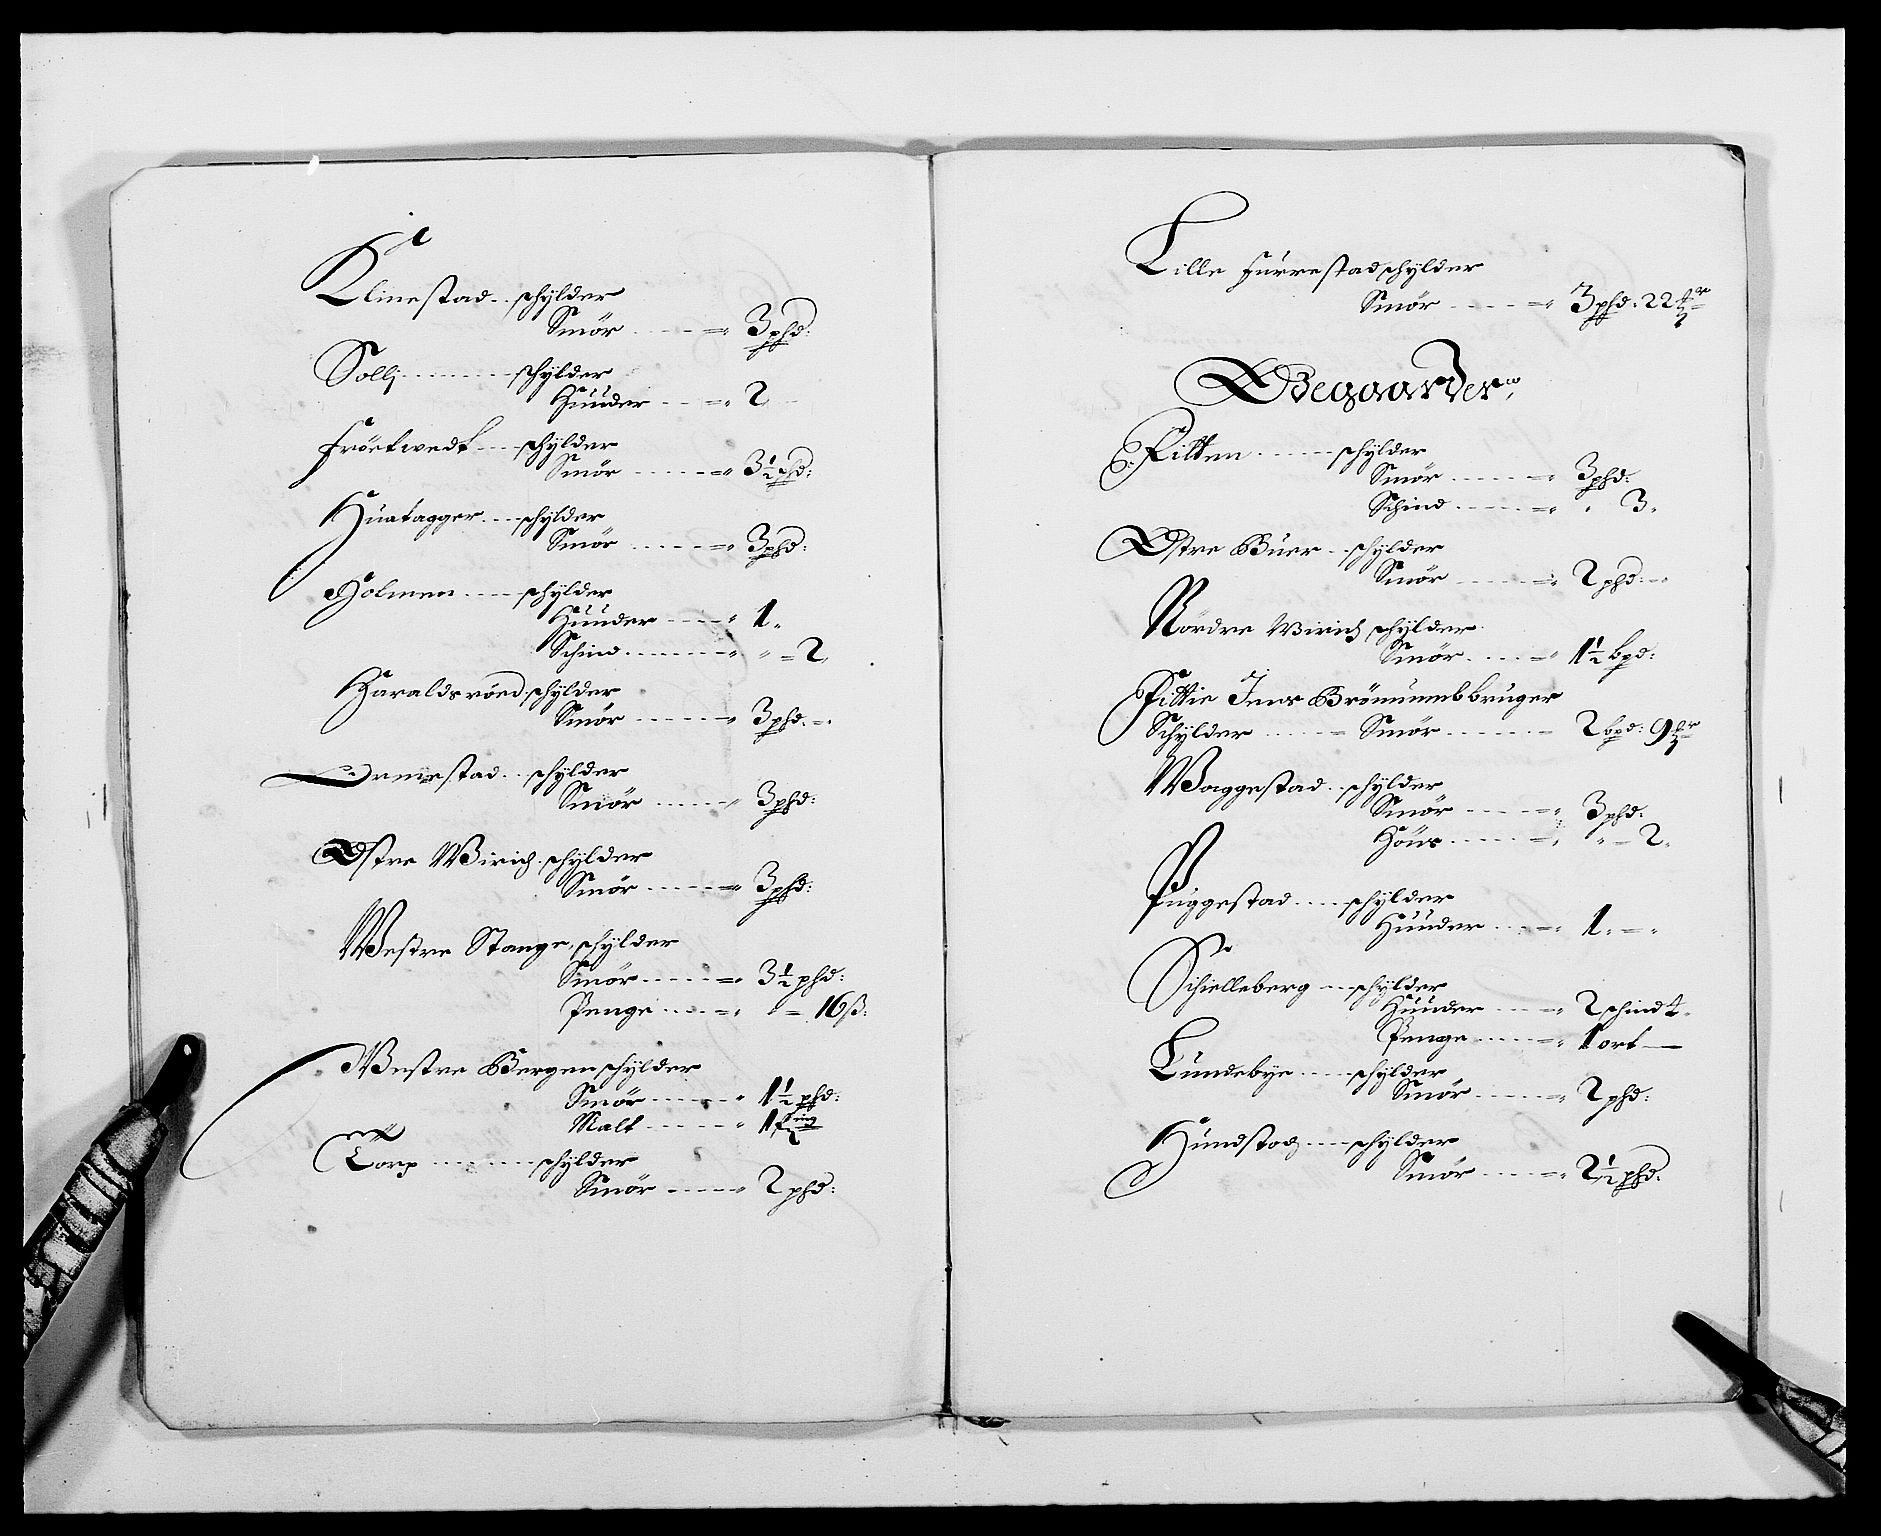 Klinestad .. schylder
Smör ..... = 3 phd:
Solli ........ schylder
Huuder ... = 2
Fröitwedt ... schylder
Smör ...... = 3½ phd:
Huatagger .... schylder
Smör ...... = 3 phd:
Holmen ..... schylder
Huuder ..... 1.
Schind ........ = 2,
Haraldsröed schylder
Smör ...... 3 phd. = .
Ormestad .. schylder
Smör ...... 3 phd:
Østre Wirich schylder
Smör ...... = 3 phd:
Westre Stange, schylder
Smör ...... = 3½ phd:
Penge ..... = 16 ß:
Westre Bergen schylder
Smör ...... 1½ phd:
Malt ...... 1
Torp ........ schylder
Smör ..... 2 phd:
Lille Furrestad schylder
Smör ..... = 3 phd: 22
Ødegaarder,
Kilten ...... schylder
Smör ..... = 3 phd:
Schind ..... = 3.
Østre Buer .. schylder
Smör ..... = 2 phd: = .
Nördre Wirich schylder
Smör ..... = 1½ bpd:
Pittie Jens Brönumb bruger
Schylder ..... = Smör ...... = 2 bpd: 9
Waggestad .. schylder
Smör ..... = 3 phd.
Höns ..... = 2.
Puggestad .... schylder
Huuder ... = 1. = .
Schielleberg ... schylder
Huuder ... = 2 schind
Penge ..... = 1 ort —
Lundebye ..... schylder
Smör ..... = 2 phd:
Hundstod .... schylder
Smör ..... = 2½ phd.